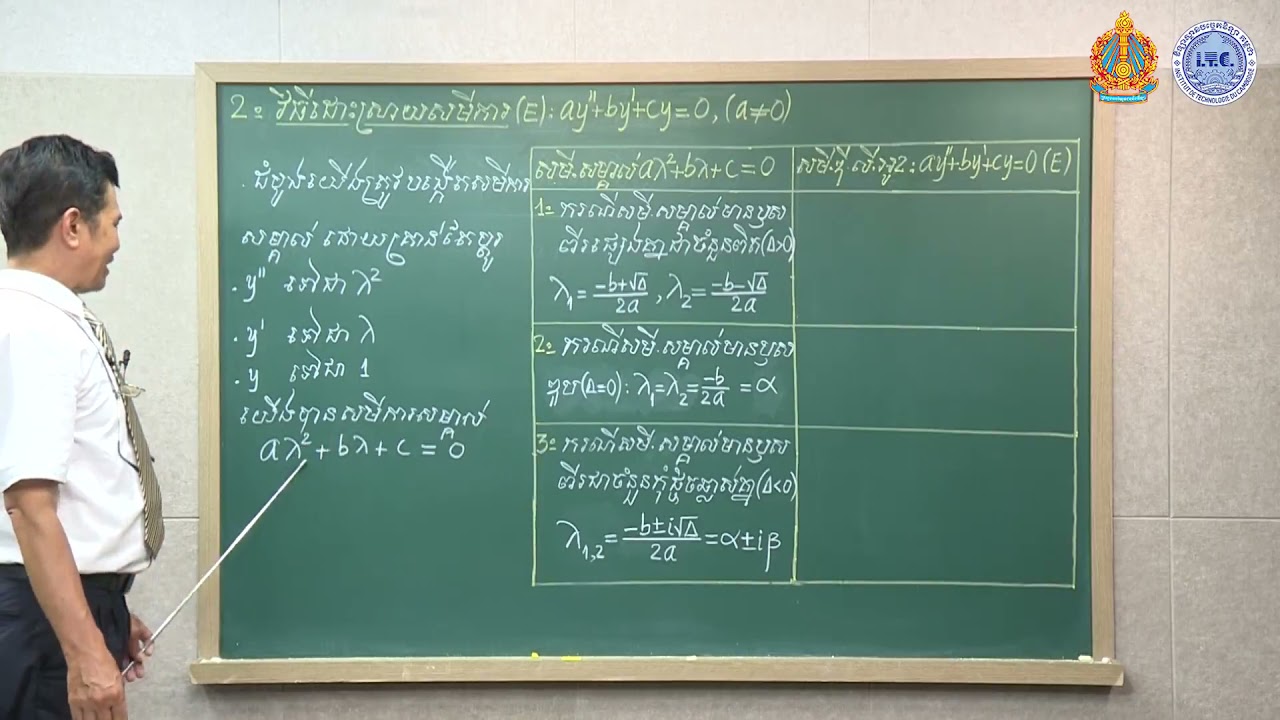 2= វិធីដោះស្រាយសមីការ (E): ay"+by'+cy=0, (a≠0)
. ដំបូងយើងត្រូវបង្កើតសមីការ
សម្គាល់ ដោយគ្រាន់តែប្តូរ
. y" ទៅជា λ²
. y' ទៅជា λ
. y ទៅជា 1
យើងបានសមីការសម្គាល់
aλ²+bλ+c=0
សមី.សម្គាល់ aλ²+bλ+c=0
1= ករណីសមី.សម្គាល់មានឫស
ពីរផ្សេងគ្នាជាចំនួនពិត(Δ>0)
λ₁=(-b+√Δ)/2a , λ₂=(-b-√Δ)/2a
2= ករណីសមី.សម្គាល់មានឫស
ឌុប(Δ=0): λ₁=λ₂=-b/2a =α
3= ករណីសមី.សម្គាល់មានឫស
ពីរជាចំនួនកុំផ្លិចឆ្លាស់គ្នា(Δ<0)
λ₁,₂=(-b±i√Δ)/2a=α±iβ
សមី.ឌី.លី.អូ.2: ay"+by'+cy=0 (E)
I.T.C.
INSTITUT DE TECHNOLOGIE DU CAMBODGE